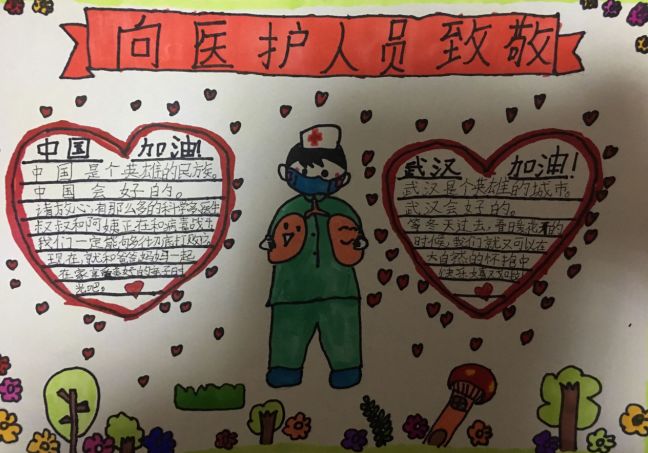 向医护人员致敬
中国 加油!
中国是个英雄的民族。
中国会好的。
请放心,有那么多的科学家医生
叔叔和阿姨正在和病毒战斗
我们一定能
现在,就和爸爸妈妈一起
在家享受美好的亲子时
光吧。
武汉 加油!
武汉是个英雄的城市
武汉会好的。
等冬天过去,春暖花开的
时候,我们就又可以在
大自然的怀抱中